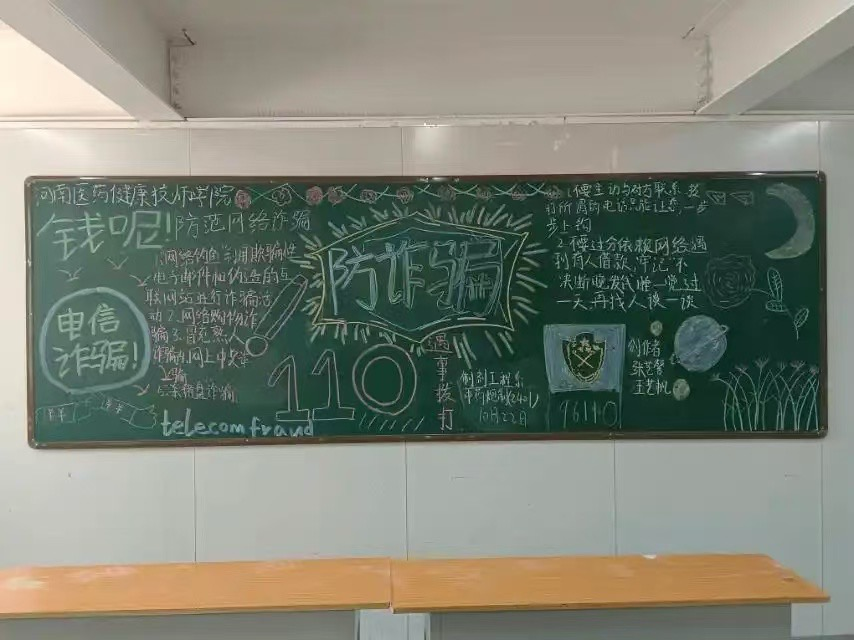 河南医药健康技师学院
钱呢!
防范网络诈骗
1.网络钓鱼利用欺骗性
电子邮件和伪造的互
联网站进行诈骗活
动 2.网络购物诈
骗 3.冒充熟
诈骗 网上中奖诈
骗
电信
诈骗!
¥¥ ¥¥
telecom fraud
防诈骗
110
遇
事
拨
打
制剂工程系
10月22日
1.便主动与对方联系,拨
打所谓的电话只能让您一步
步上钩
2.不要过分依赖网络遇
到有人借款,牢记"不
决断晚发钱睡一觉过
一天,再找人谈一谈
96110
创作者
张艺馨
王艺帆